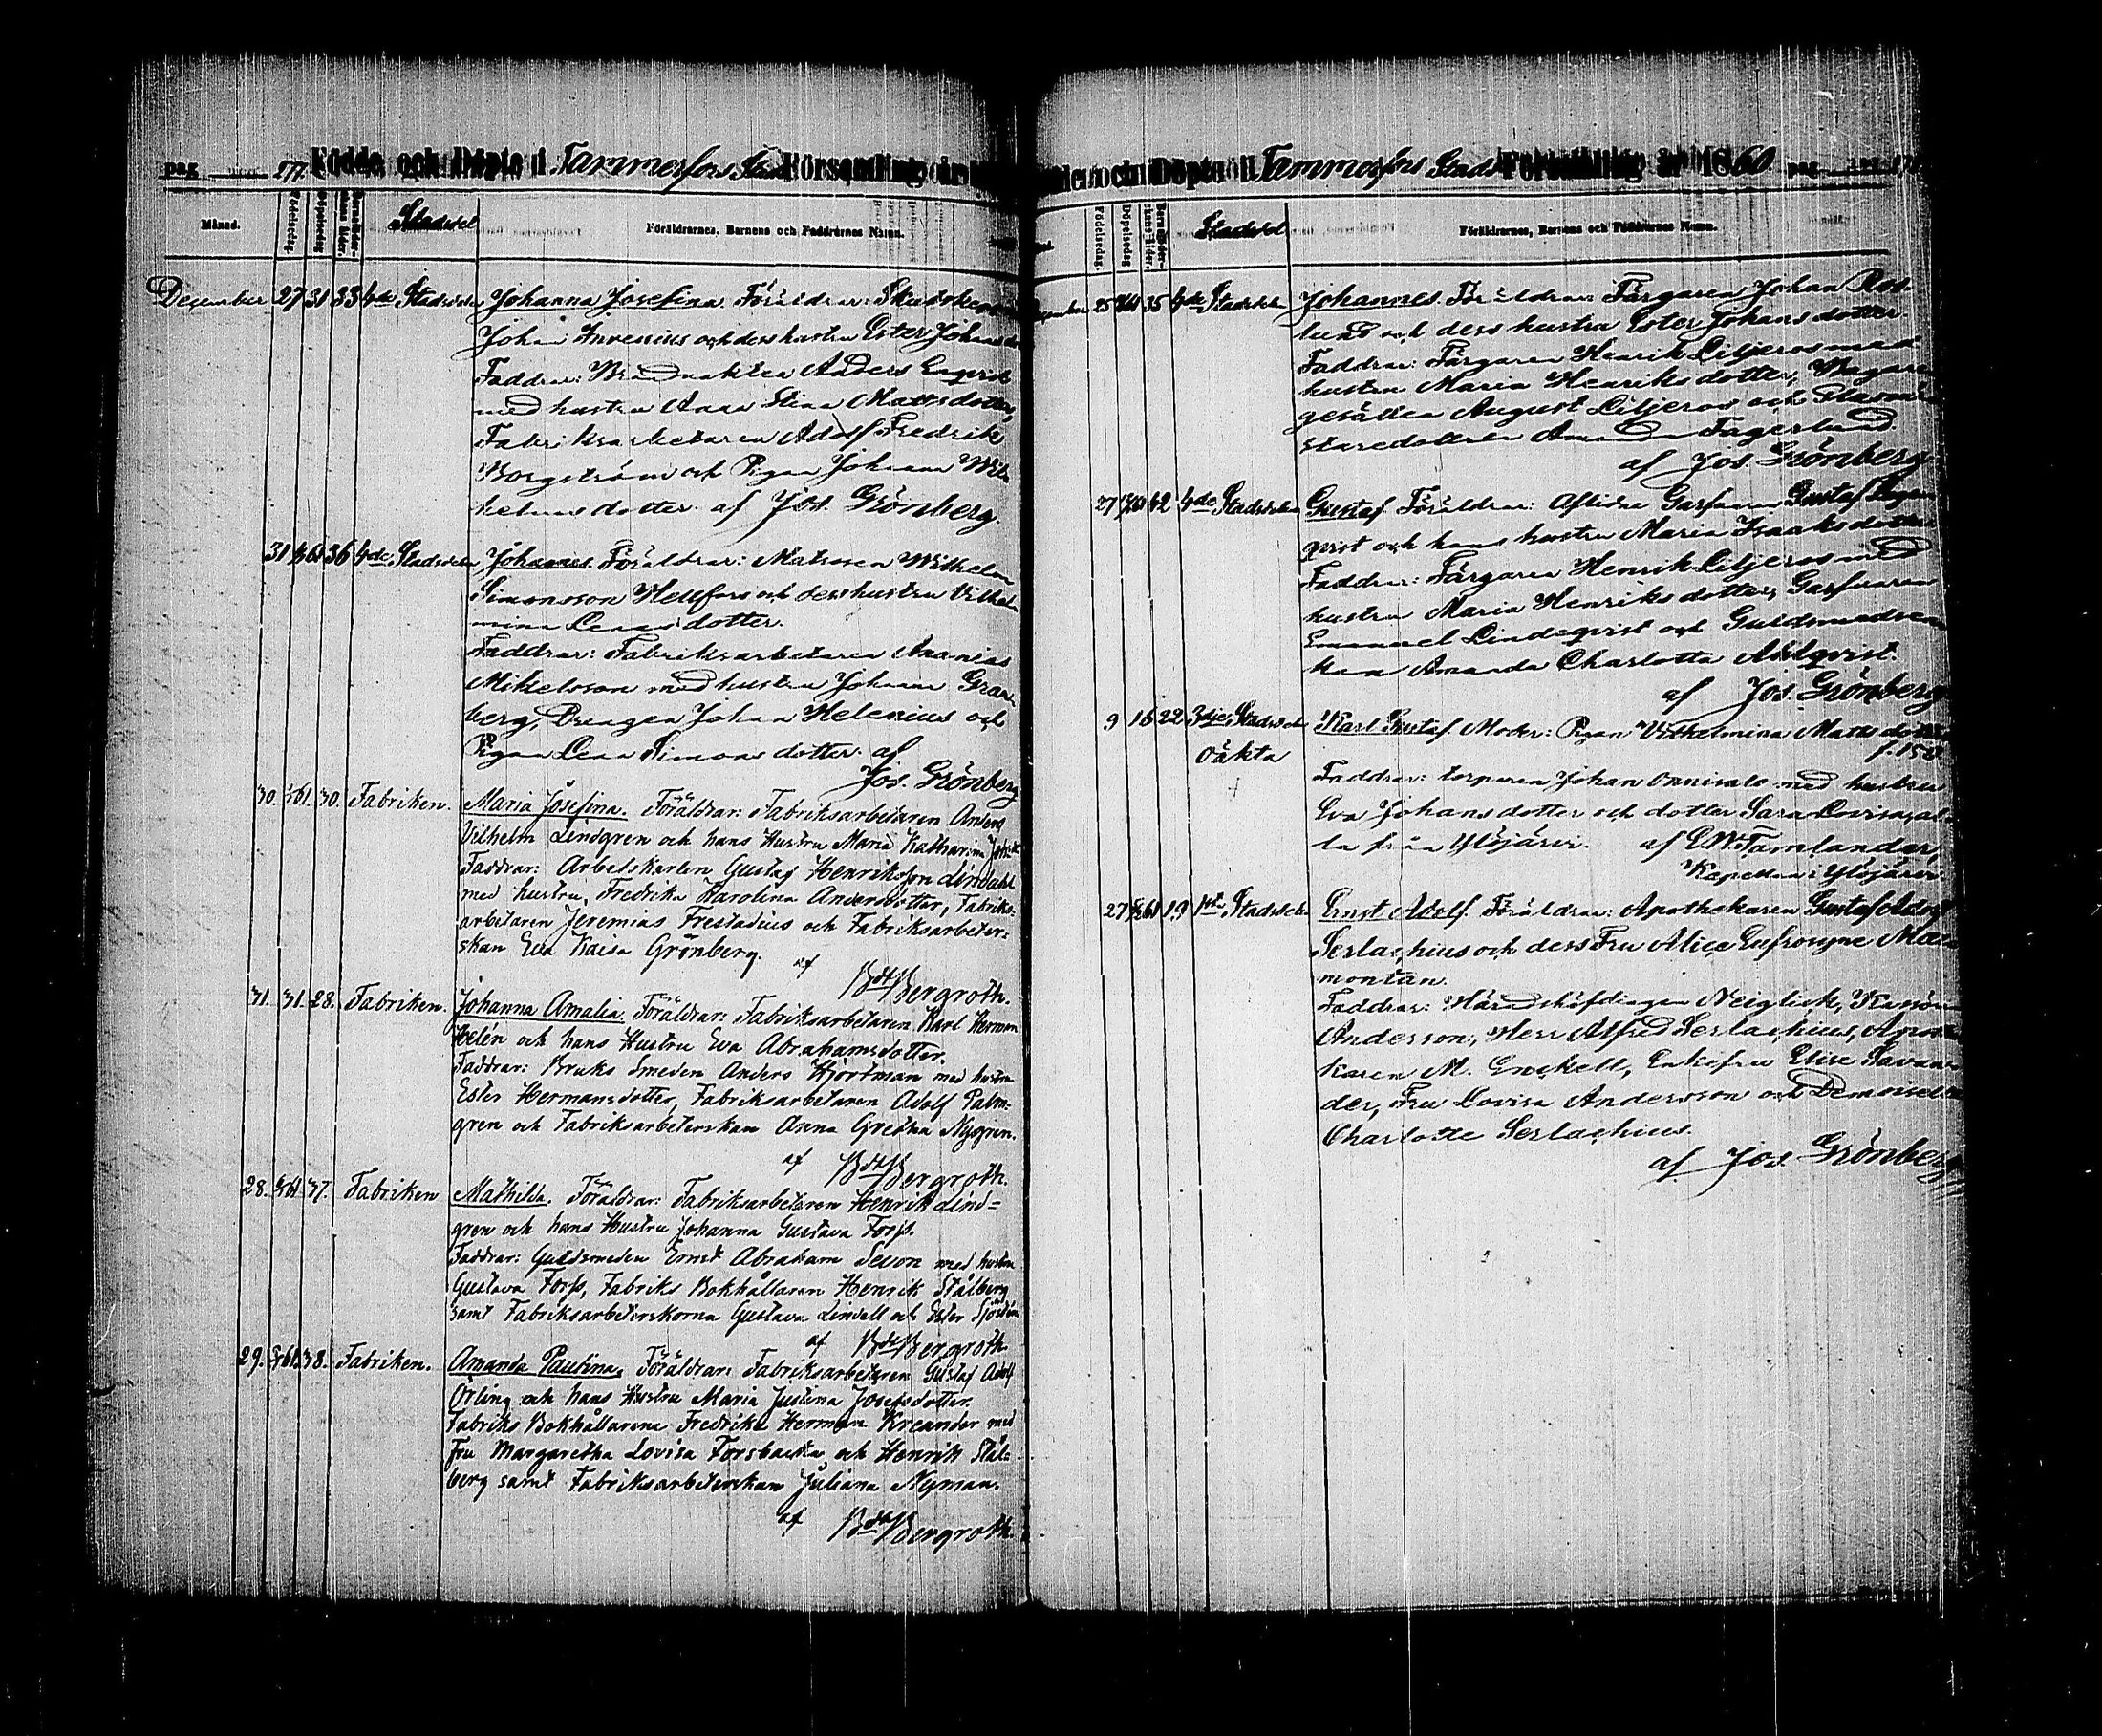 pag 177. Födde och Döpte i Tammerfors Stads Församling år
Månad. Födelsedag. Döpelsedag Stadsdel Föräldrarnes, Barnens och Faddrarnes Namn.
December 27 31 33 4de Stadsdelen Johanna Josefina. Föräldrar:
Johan och dess hustru Ester Johans
Faddrar: Brandvakten Anders Engvist
med hustru Anna Stina Mattsdotter,
Fabriksarbetaren Adolf Fredrik
Borgström och Pigan Johanna Wil
helmsdotter. af Jos. Grönberg.
31 61 36 4de Stadsdelen Johannes. Föräldrar: Matrosen Wilhelm
Simonsson Hellfors och dess hustru Vilhel
mina dotter.
Faddrar: Fabriksarbetaren Ananias
Mikelsson med hustru Johanna Gran
berg, Drengen Johan Helenius och
Pigan Lena Simonsdotter. af
Jos. Grönberg
30. 61. 30. Fabriken. Maria Josefina. Föräldrar: Fabriksarbetaren Anders
Vilhelm Lindgren och hans Hustru Maria Katharina
Faddrar: Arbetskarlen Gustaf Henriksson Lindahl
med hustru, Fredrika Karolina Andersdotter, Fabriks-
arbetaren Jeremias Frestadius och Fabriksarbeter-
skan Eva Kaisa Grönberg.
af Bergroth.
31. 31. 28. Fabriken. Johanna Amalia. Föräldrar: Fabriksarbetaren Karl Herman
Helén och hans Hustru Eva Abrahamsdotter.
Faddrar: Bruks Smeden Anders Hjortman med hustru
Ester Hermansdotter, Fabriksarbetaren Adolf Palm-
gren och Fabriksarbeterskan Anna Gretha Nygren.
af Bergroth.
28. 61. 37. Fabriken Mathilda. Föräldrar: Fabriksarbetaren Henrik Lind=
gren och hans Hustru Johanna Gustava Forss.
Faddrar: Guldsmeden Ernst Abraham Sevon med hustru
Gustava Forss, Fabriks Bokhållaren Henrik Stålberg
samt Fabriksarbeterskorna Gustava Lindell och Ester
af Bergroth.
29. 61. 38. Fabriken. Amanda Paulina. Föräldrar: Fabriksarbetaren Gustaf Adolf
Örling och hans Hustru Maria Justina Josefsdotter.
Fabriks Bokhållarene Fredrik Herman Kreander med
Fru Margaretha Lovisa Forsbacka och Henrik Stål-
berg samt Fabriksarbeterskan Juliana Nyman.
af Bergroth.
Döpte i Tammerfors Stads Församling år 1860. pag
Födelsedag. Döpelsedag Stadsdel Föräldrarnes, Barnens och Faddrarnes Namn.
25 35 4de Stadsdelen Johannes. Föräldrar: Färgaren Johan Ros-
lund och dess hustru Ester Johansdotter.
Faddrar: Färgaren Henrik Liljeros med
hustru Maria Henriksdotter, Bagare
gesällen August Liljeros och
Amanda Fagerlund.
af Jos. Grönberg
27 42 4de Stadsdelen Gustaf. Föräldrar: Aflidne Garfvaren Gustaf
qvist och hans hustru Maria Isaaksdotter
Faddrar: Färgaren Henrik Liljeros med
hustru Maria Henriksdotter, Garfvaren
Emanuel Lindeqvist och
Amanda Charlotta Ahlqvist.
af Jos. Grönberg
9 16 22 3dje Stadsdelen Karl Gustaf. Moder: Pigan Wilhelmina Mattsdotter
oäkta
Faddrar: torparen Johan Onnivalo med hustru
Eva Johansdotter och dotter Sara Lovisa, al-
la från Ylöjärvi. af Tamlander,
Kapellan i Ylöjärvi.
27 61 19 1sta Stadsdelen Ernst Adolf. Föräldrar: Apothekaren Gustaf Adolf
Serlachius och dess Fru Alice Eufrosyne
montan.
Faddrar: Häradshöfdingen Neiglick,
Andersson, Herr Alfred Serlachius, Apothe
karen M. Enckell, Enkefru Elise Savan
der, Fru Lovisa Andersson och Demoiselle
Charlotte Serlachius.
af Jos. Grönberg